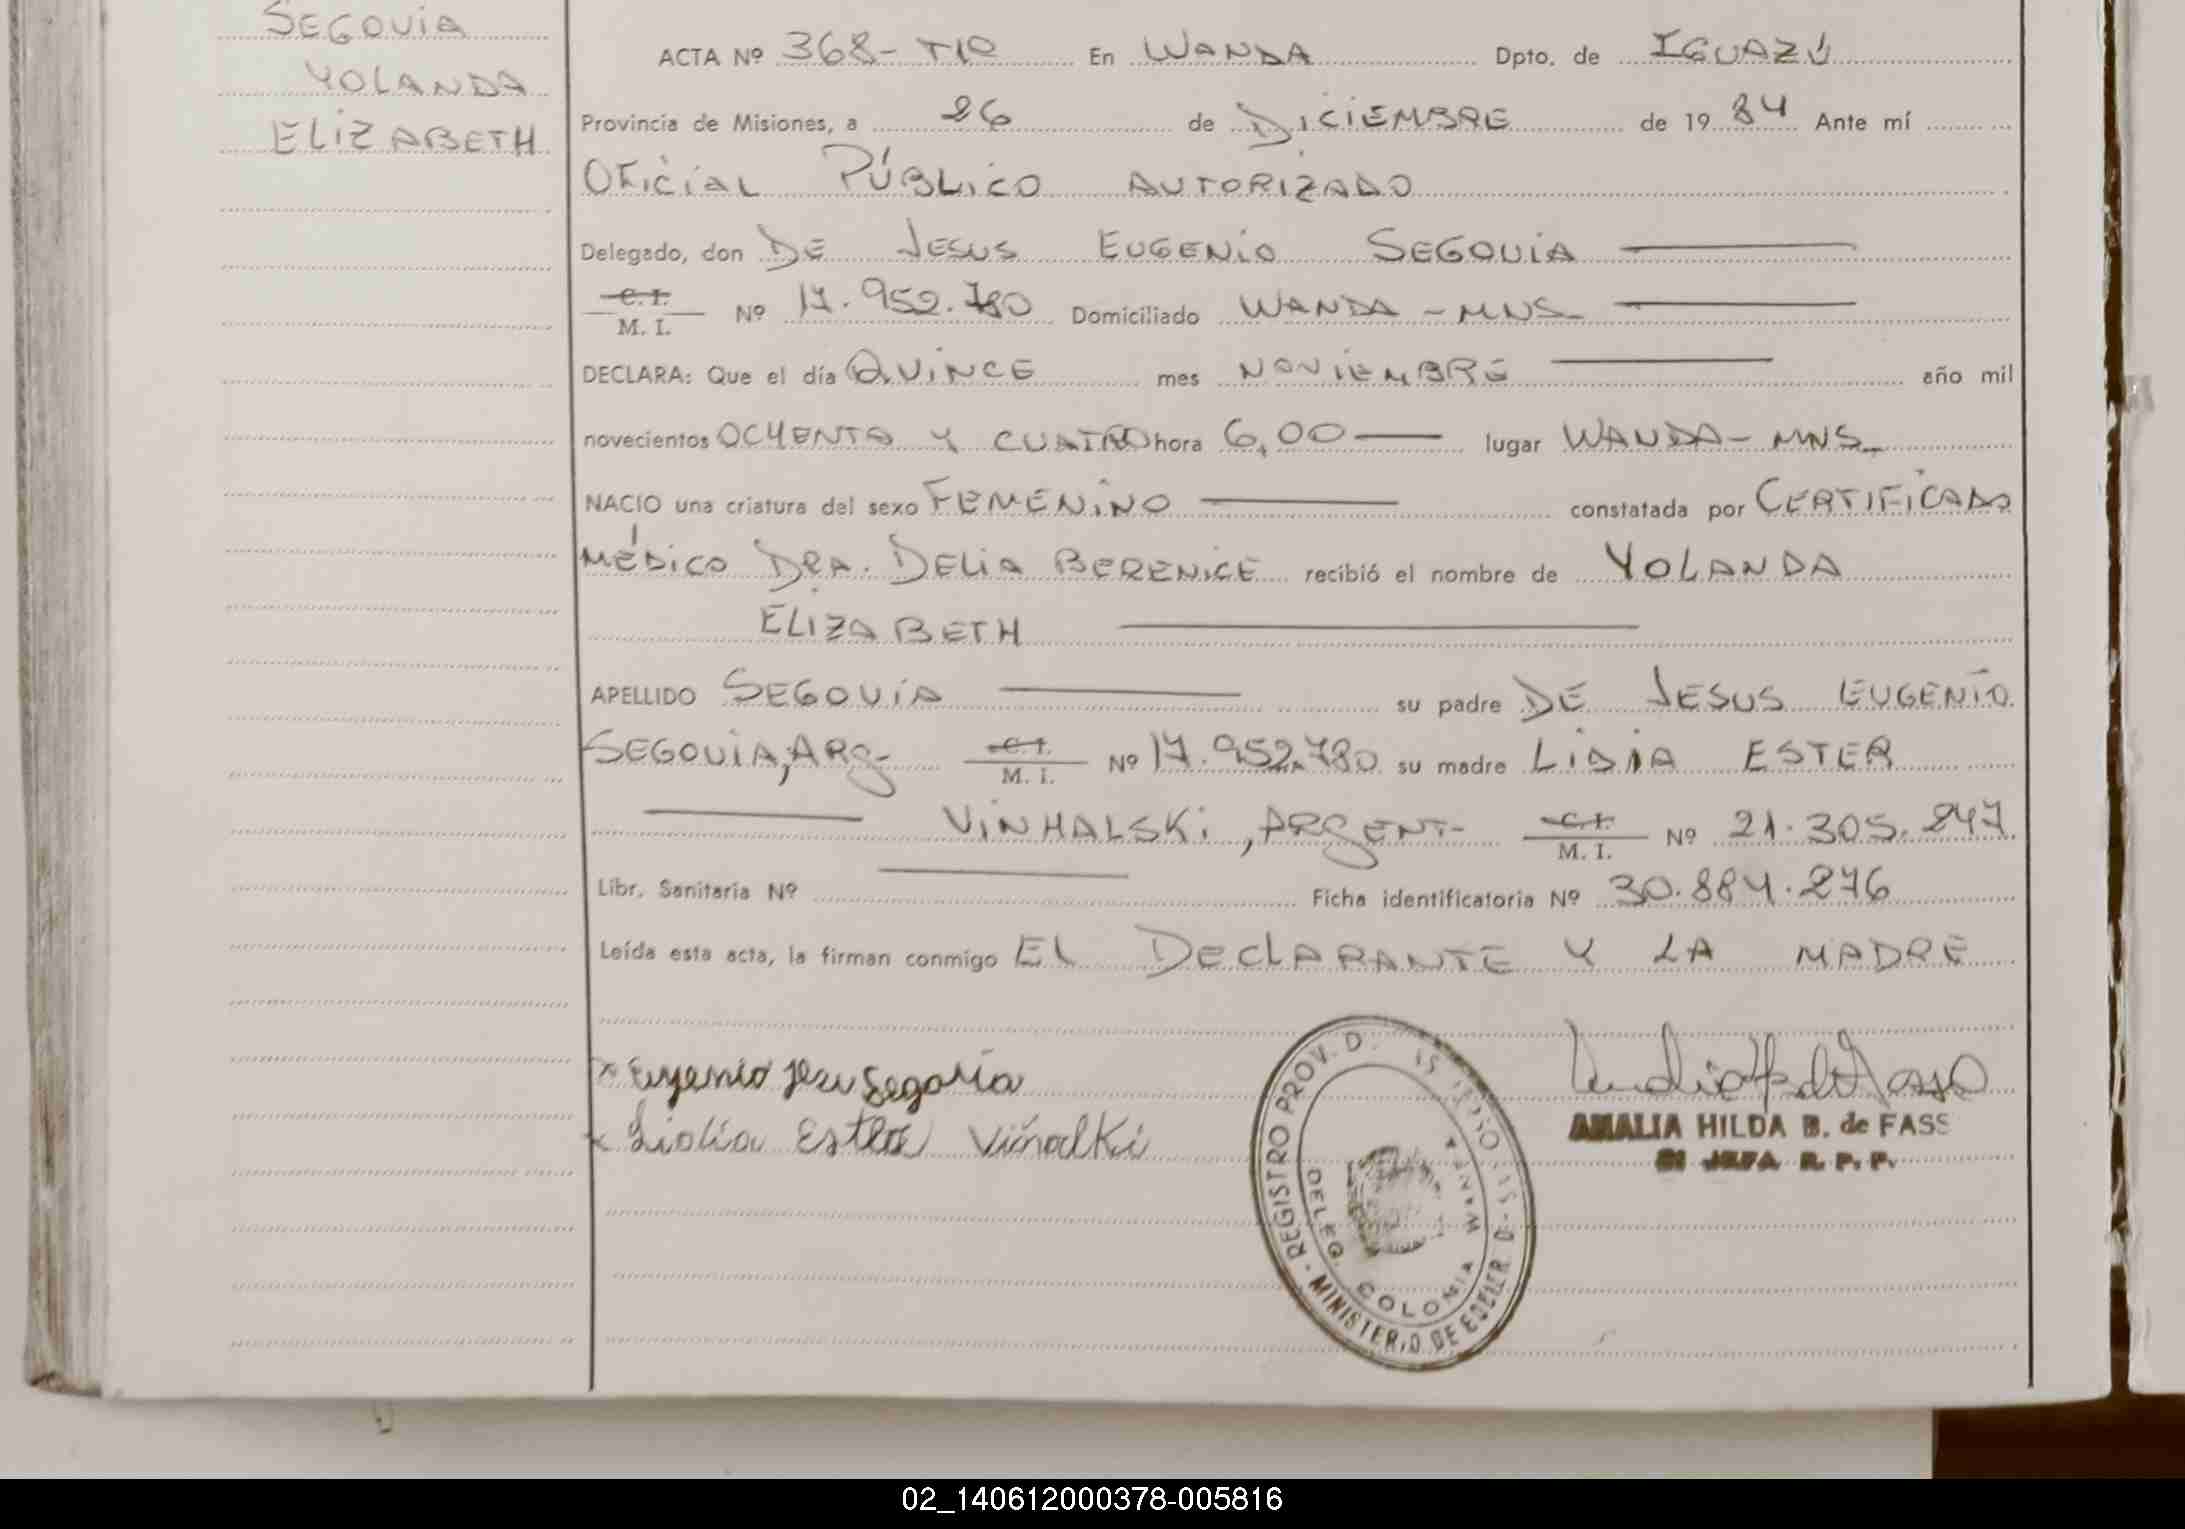 SEGOVIA
YOLANDA
ELIZABETH
ACTA Nº 368- TIO En WANDA Dpto. de IGUAZÚ
Provincia de Misiones, a 26 de DICIEMBRE de 1984 Ante mí
OFICIAL PÚBLICO AUTORIZADO
Delegado, don DE JESUS EUGENIO SEGOVIA
C. I.
M. I. Nº 17.952.780 Domiciliado WANDA - MNS-
DECLARA: Que el día QUINCE mes NOVIEMBRE año mil
novecientos OCHENTA Y CUATRO hora 6,00 lugar WANDA- MNS-
NACIO una criatura del sexo FEMENINO constatada por CERTIFICADO
MÉDICO DRA. DELIA BERENICE recibió el nombre de YOLANDA
ELIZABETH
APELLIDO SEGOVIA su padre DE JESUS EUGENIO
SEGOVIA, ARG- C. I. M. I. Nº 17.952.780 su madre LIDIA ESTER
VINHALSKI, ARGENT- C. I. M. I. Nº 21.305.247
Libr. Sanitaria Nº Ficha identificatoria Nº 30.884.276
Leída esta acta, la firman conmigo EL DECLARANTE Y LA MADRE
x Eugenio Jesu Segovia
x Lidia Ester Viñalki
AMALIA HILDA B. de FASS
JEFA R. P. P.
REGISTRO PROV. D
MINISTERIO DE
DELEG. COLONIA WANDA
02_140612000378-005816